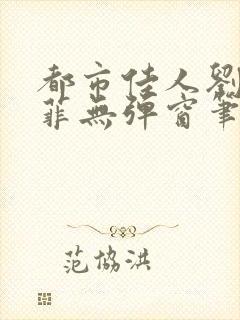 都市佳人劉
菲無彈窗筆
范協洪